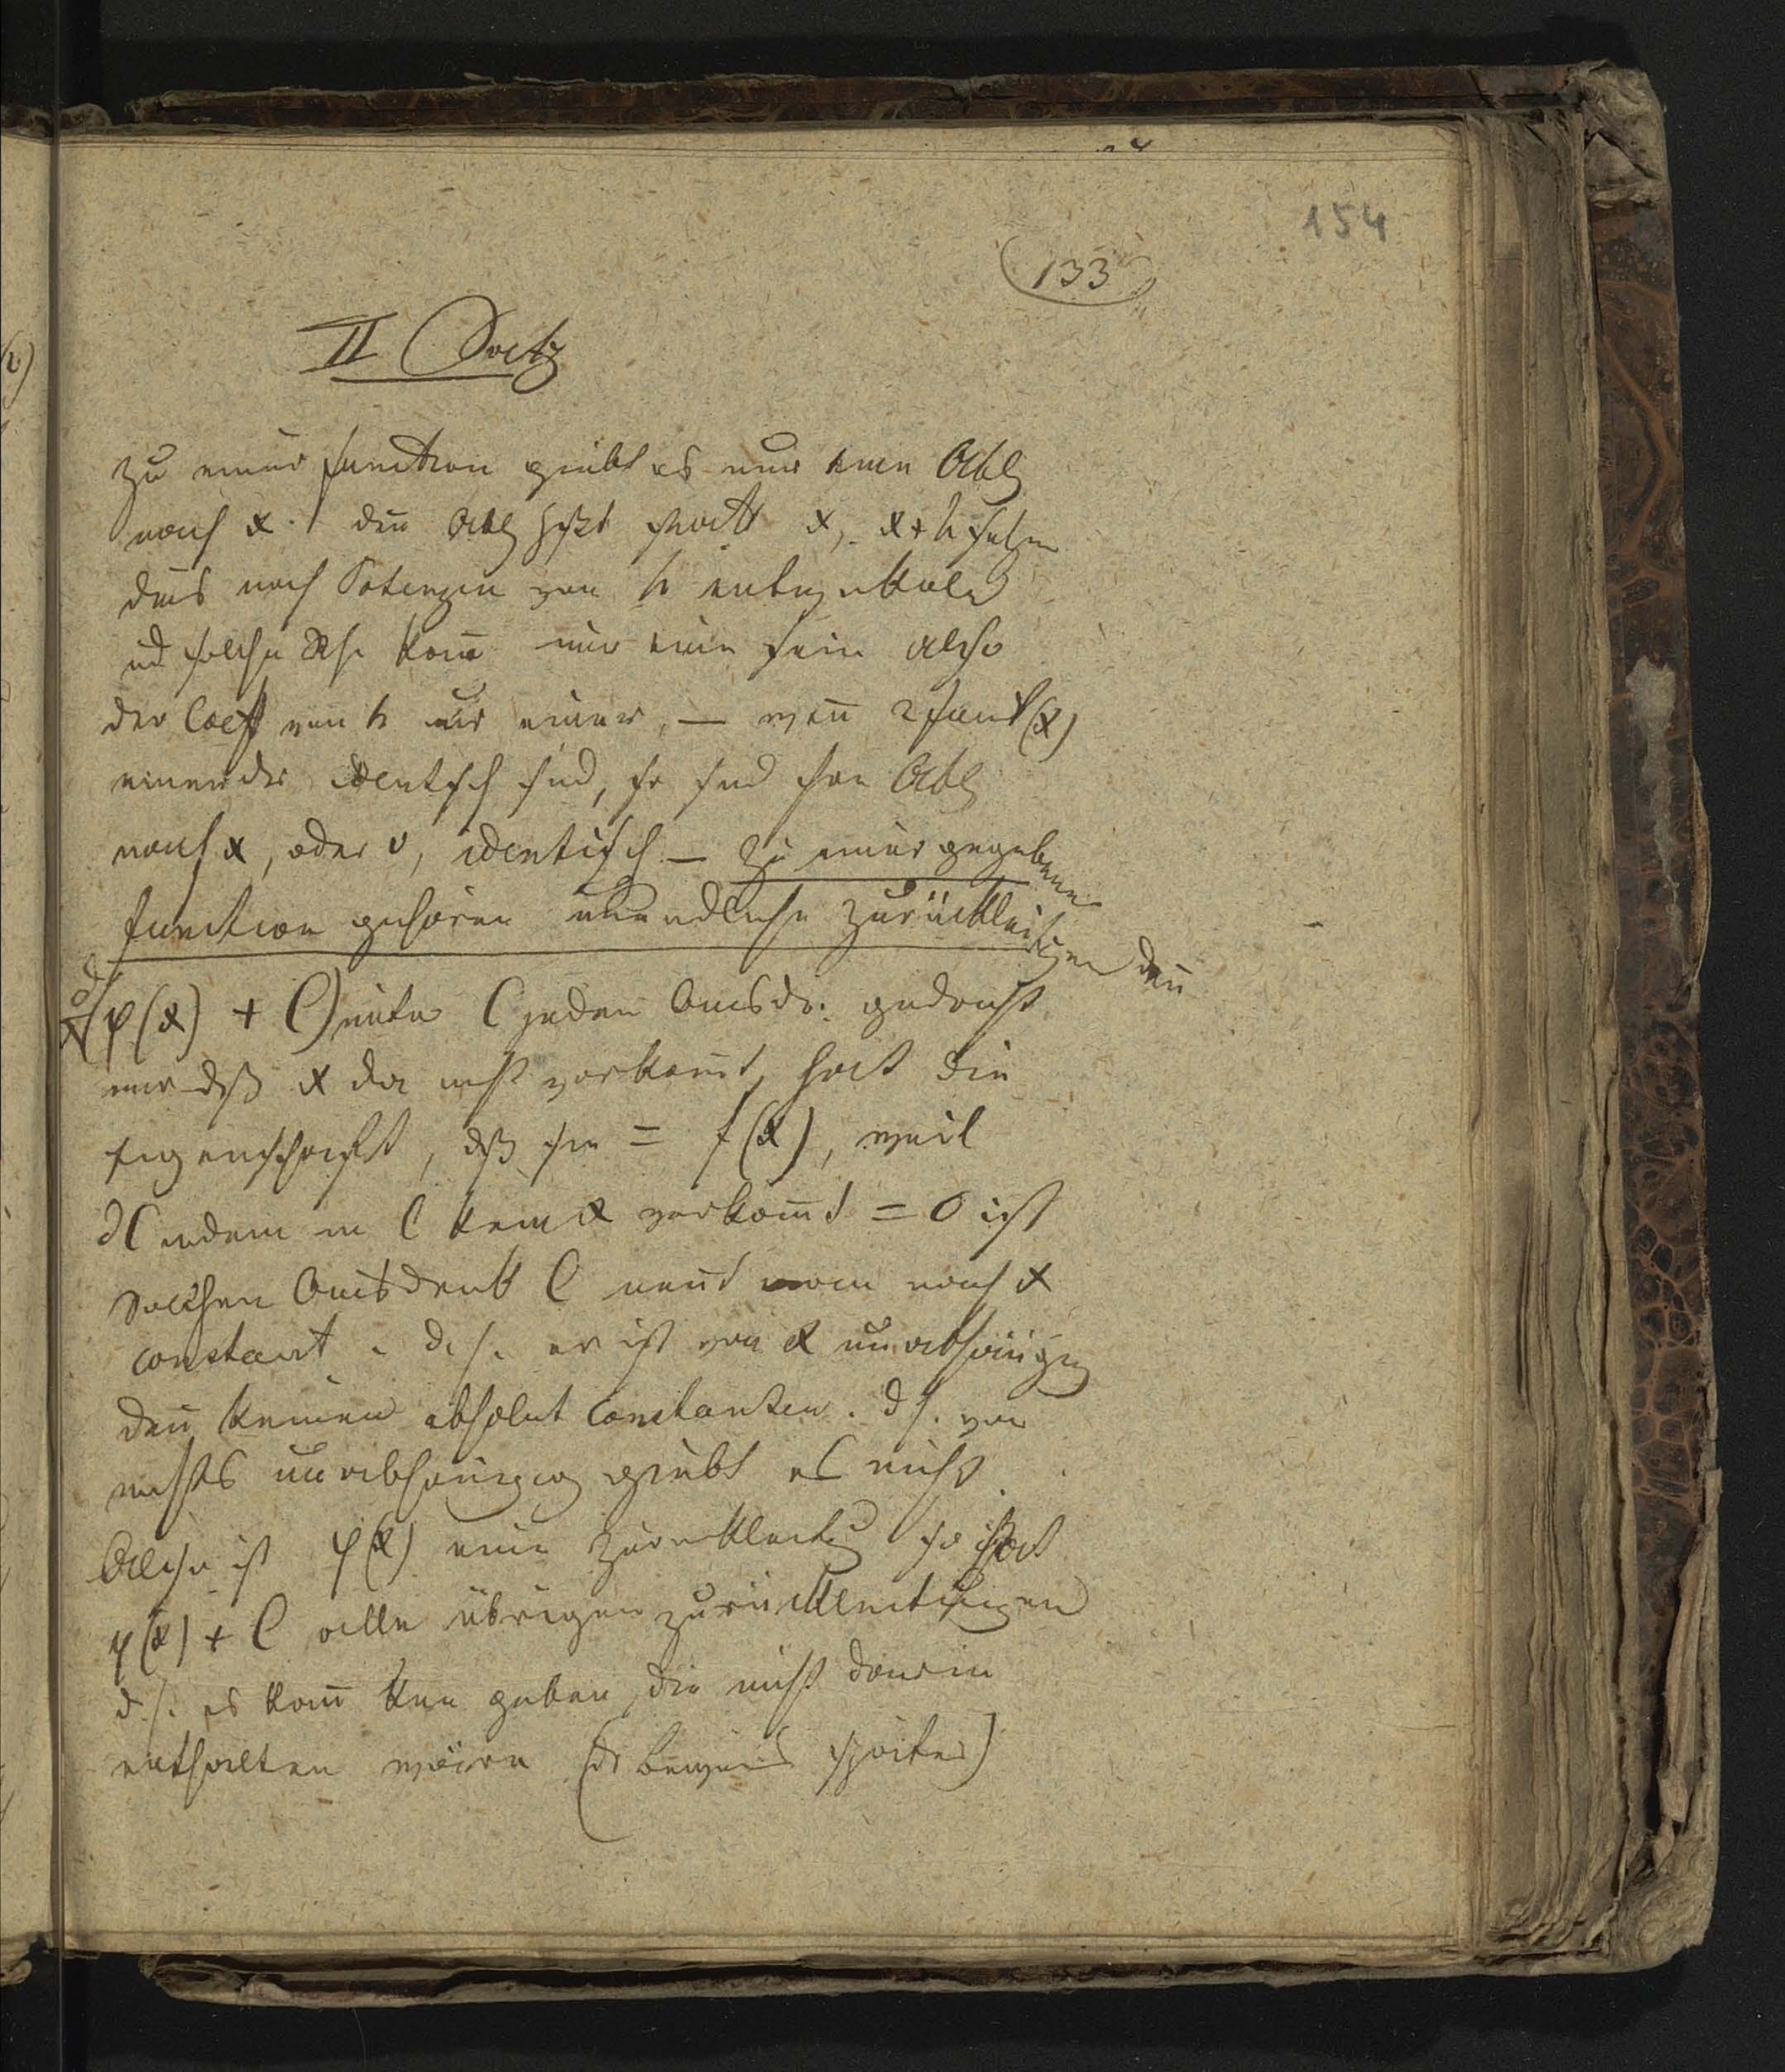 154
(133)
II Satz
Zu einer function giebt es nur eine Abl
nach x. den Abl hßt statt x, x+h setzen
dies nach Potenzen von h entwickeln
ud solche Rh. kañ nur eine sein also
der Coeff von h nur einer, — weñ 2 funkt (x)
einander identisch sind, so sind ihre Abl
nach x, oder v, identisch — zu einer gegebenen
function gehören unendliche Zurückleitungen deñ
(φ(x) + C) unter C jeden Ausdr. gedacht
nur dß x da nicht vorkom̄t, hat die
Eigenschaft, dß sie = f(x), weil
∂C indem in C kein x vorkom̄t = 0 ist
Solchen Ausdruck C neñt man nach x
constant. d.h. er ist von x unabhängig
deñ keinen absolut Constanten. d h. von
nichts unabhängig giebt es nicht.
Also ist φ(x) eine Zurückleitg so hat
φ(x) + C alle übrigen Zurückleitungen
d.h. es kañ keine geben, die nicht darin
enthalten wäre (der Beweis später)